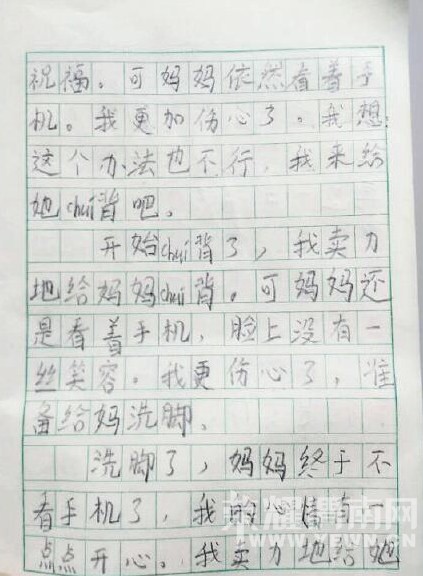 祝福。可妈妈依然看着手
机。我更加伤心了。我想:
这个办法也不行,我来给
她chuí背吧。
开始chuí背了,我卖力
地给妈妈chuí背。可妈妈还
是看着手机,脸上没有一
丝笑容。我更伤心了,准
备给妈洗脚。
洗脚了,妈妈终于不
看手机了,我的心情有一
点点开心。我卖力地给她
荣耀渭南网